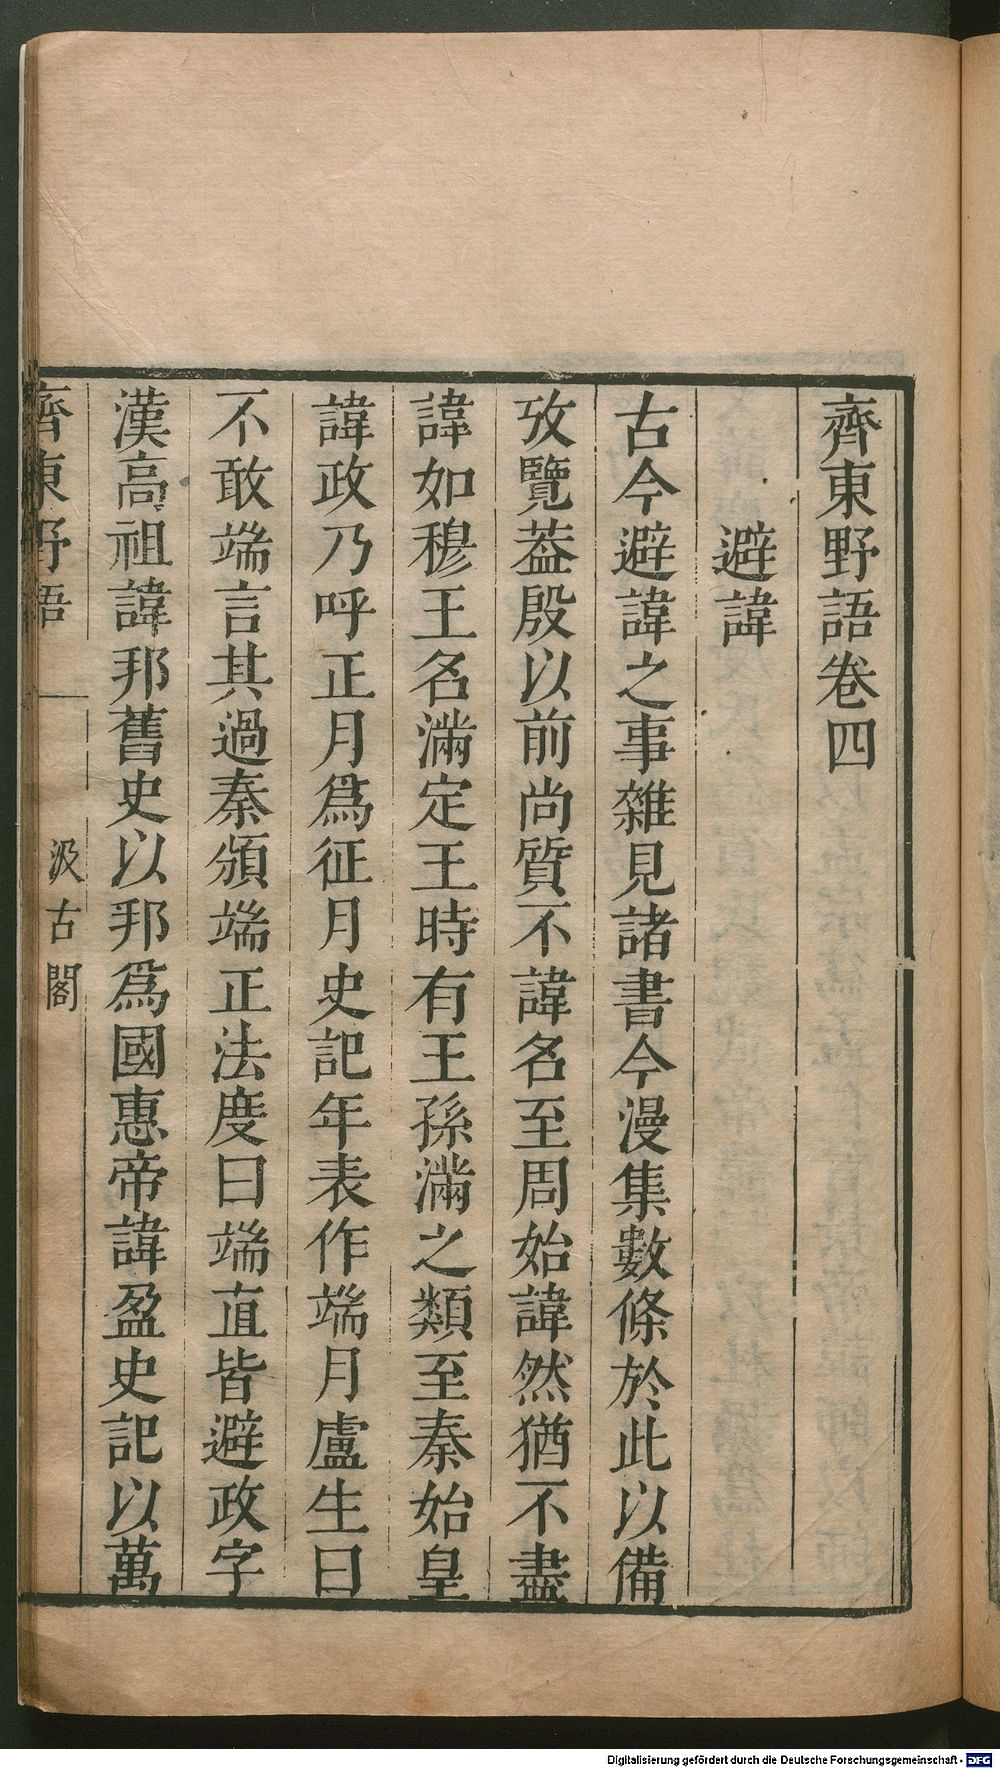 齊東野語卷四
避諱
古今避諱之事雜見諸書今漫集數條於此以備
攷覽葢殷以前尚質不諱名至周始諱然猶不盡
諱如穆王名滿定王時有王孫滿之類至秦始皇
諱政乃呼正月爲征月史記年表作端月盧生曰
不敢端言其過秦頒端正法度曰端直皆避政字
漢高祖諱邦舊史以邦爲國惠帝諱盈史記以萬
齊東野語
汲古閣
Digitalisierung gefördert durch die Deutsche Forschungsgemeinschaft - DFG